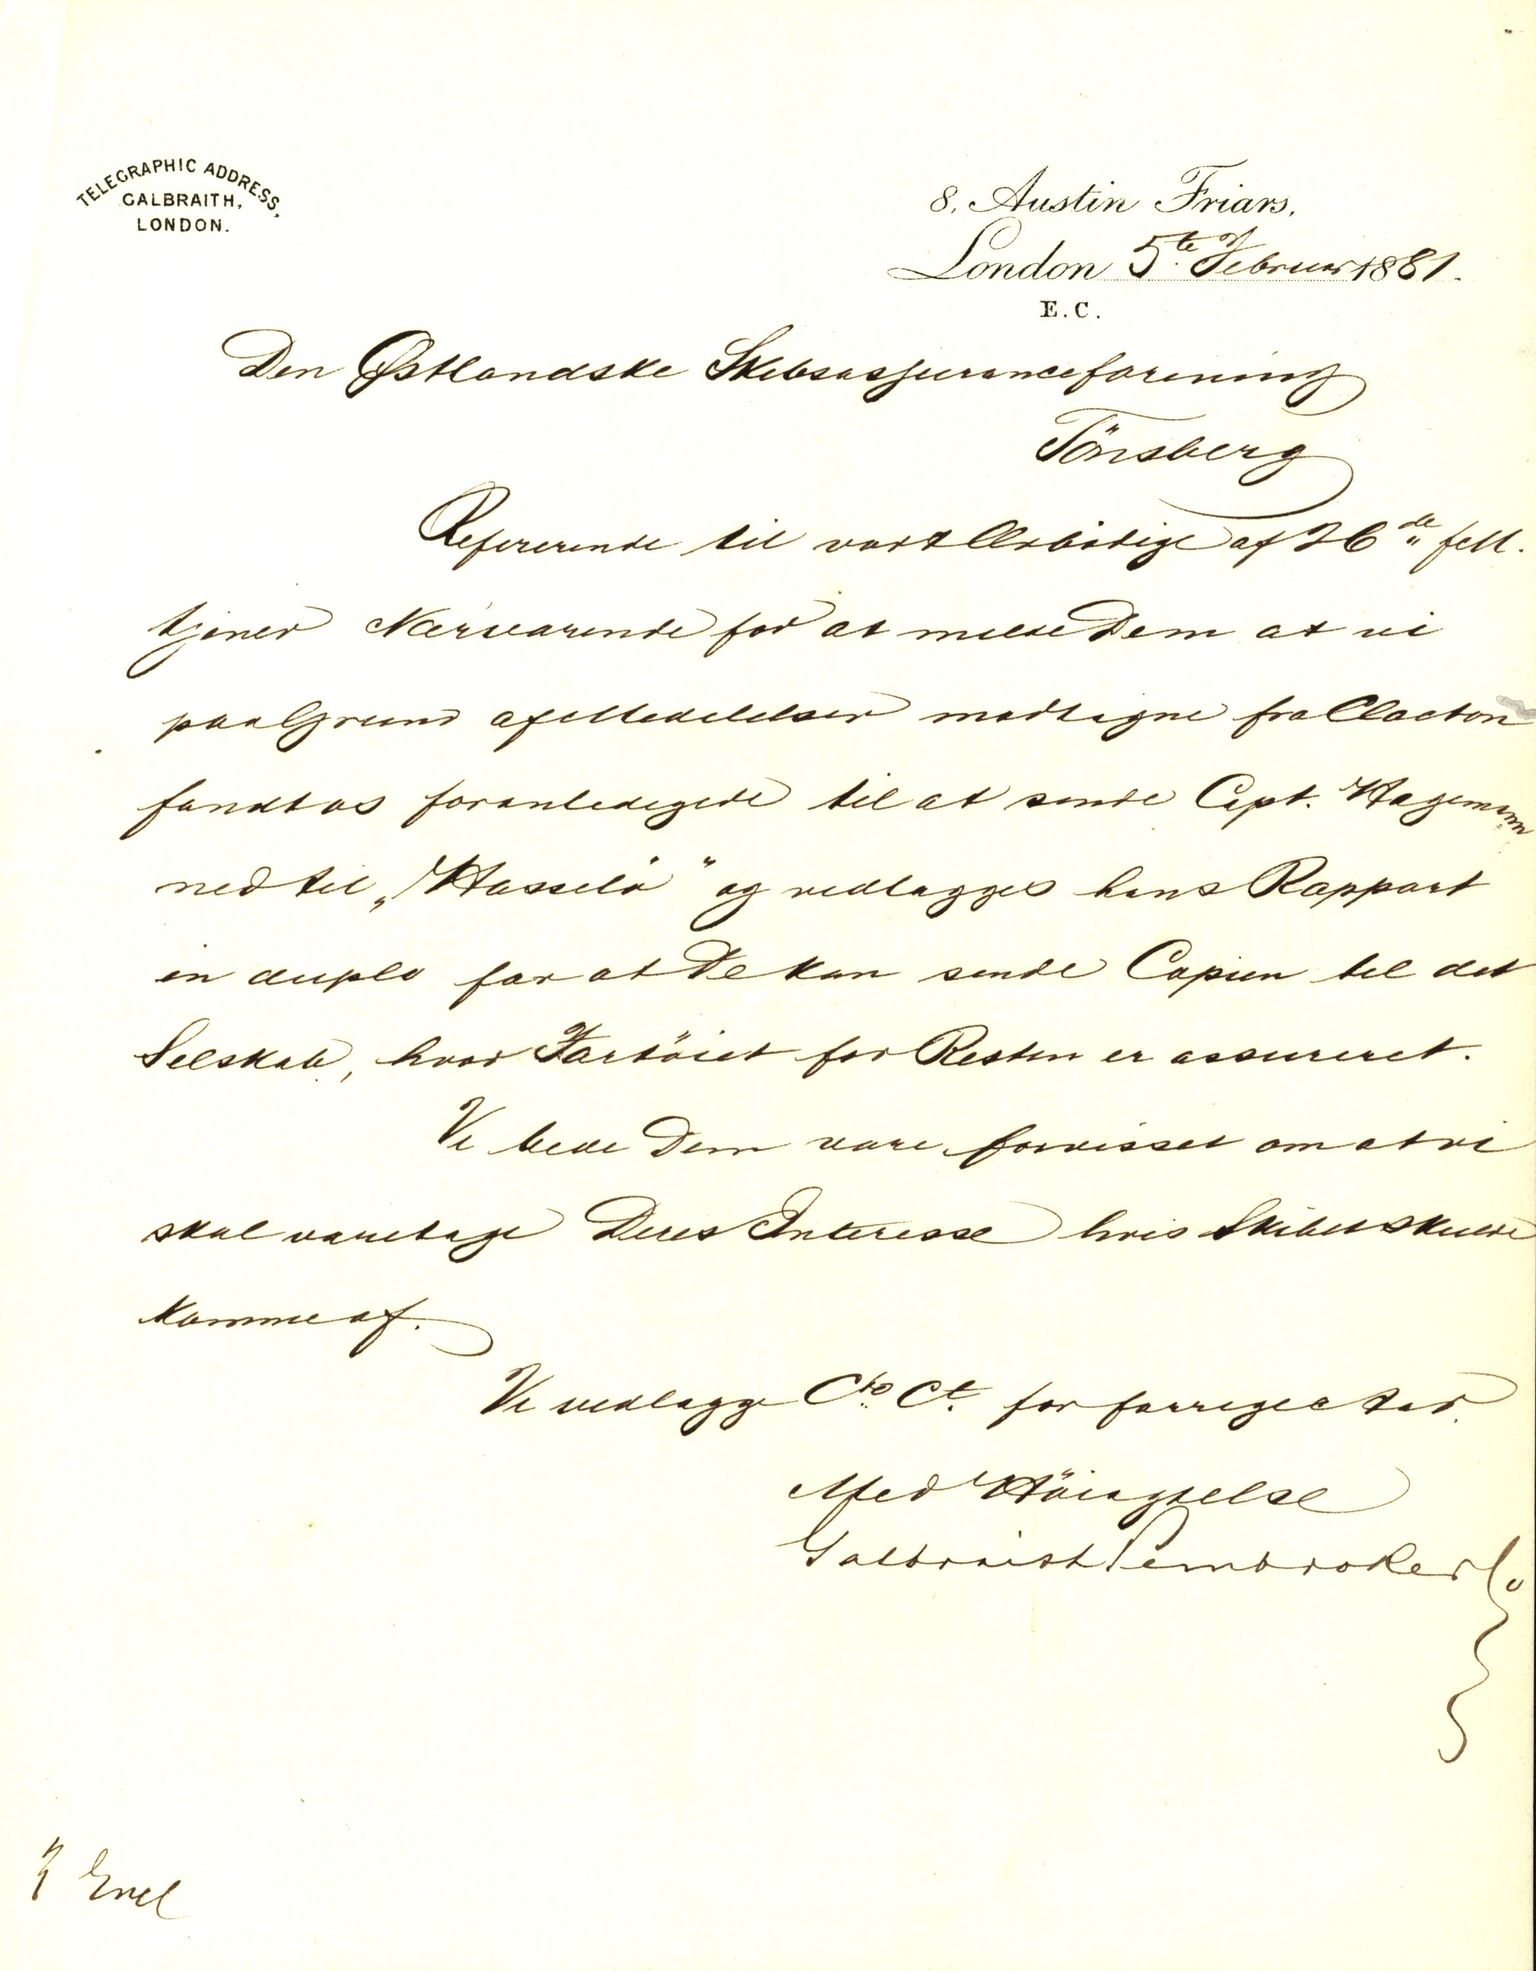 TELEGRAPHIC ADDRESS,
GALBRAITH,
LONDON.
8, Austin Friars,
London 5te Februar 1881.
E.C.
Den Østlandske Skibsassuranceforening
Tönsberg
Refererende til vort Ærbödige af 26de
tjener Nærværende for at melde Dem at vi
paa Grund af Meddelelser modtagne fra Clacton
fandt os foranledigede til at sende Capt. Hagemann
ned til „Hasselö" og vedlægges hans Rapport
in duplo for at De kan sende Copien til det
Selskab, hvor Fartöiet for Resten er assureret.
Vi bede Dem være forvisset om at vi
skal varetage Deres Interesse hvis Skibet skulde
komme af.
Vi vedlægge Cto Ct. for forrige Aar.
Med Höiagtelse
Galbraith Pembroke & Co
3 Encl